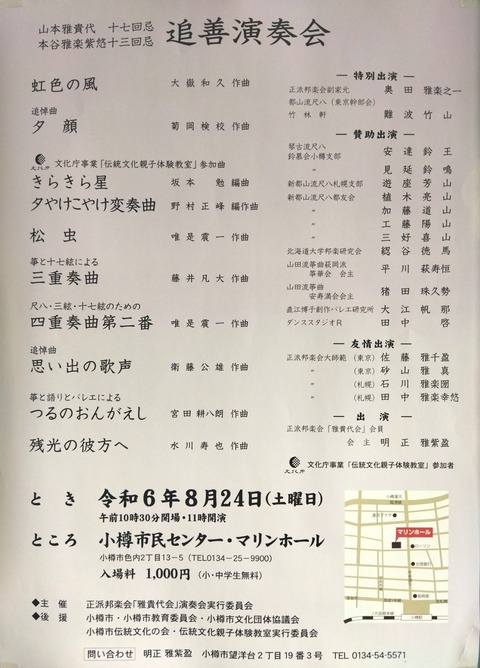 山本雅貴代 十七回忌
本谷雅楽紫悠十三回忌
追善演奏会
虹色の風 大嶽和久 作曲
追悼曲
夕顔 菊岡検校 作曲
文化庁事業「伝統文化親子体験教室」参加曲
きらきら星 坂本 勉 編曲
夕やけこやけ変奏曲 野村正峰 編作曲
松虫 唯是震一 作曲
箏と十七絃による
三重奏曲 藤井凡大 作曲
尺八・三絃・十七絃のための
四重奏曲第二番 唯是震一 作曲
追悼曲
思い出の歌声 衛藤公雄 作曲
箏と語りとバレエによる
つるのおんがえし 宮田耕八朗 作曲
残光の彼方へ 水川寿也 作曲
― 特別出演 ―
正派邦楽会副家元 奥田雅楽之一
都山流尺八(東京幹部会)
竹林軒 難波竹山
― 賛助出演 ―
琴古流尺八
鈴慕会小樽支部 安達鈴王
〃 見延鈴鳴
新都山流尺八札幌支部 遊座芳山
新都山流尺八都友会 植木亮山
〃 加藤道山
〃 工藤陽山
〃 三好喜山
北海道大学邦楽研究会 総谷徳馬
山田流箏曲萩岡派
箏華会 会主 平川萩寿恒
山田流箏曲
安寿満会会主 猪田珠久勢
直江博子創作バレエ研究所 大江帆那
ダンススタジオR 田中 啓
― 友情出演 ―
正派邦楽会大師範 (東京) 佐藤雅千盈
〃 (東京) 砂山雅真
〃 (札幌) 石川雅楽圀
〃 (札幌) 田中雅楽幸悠
― 出演 ―
正派邦楽会「雅貴代会」会員
会主 明正雅紫盈
文化庁事業「伝統文化親子体験教室」参加者
とき 令和6年8月24日(土曜日)
午前10時30分開場・11時開演
ところ 小樽市民センター・マリンホール
小樽市色内2丁目13-5(TEL0134-25-9900)
入場料 1,000円(小・中学生無料)
マリンホール
◆主催 正派邦楽会「雅貴代会」演奏会実行委員会
◆後援 小樽市・小樽市教育委員会・小樽市文化団体協議会
小樽市伝統文化の会・伝統文化親子体験教室実行委員会
問い合わせ 明正 雅紫盈 小樽市望洋台2丁目19番3号 TEL 0134-54-5571